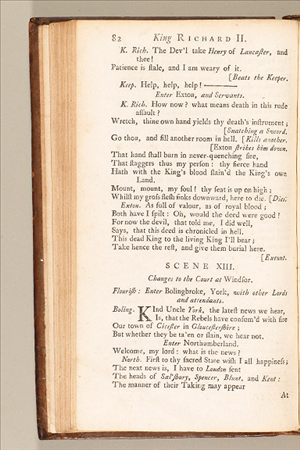 82 King RICHARD II.
K. Rich. The Dev'l take Henry of Lancaster, and
thee!
Patience is stale, and I am weary of it.
[Beats the Keeper.
Keep. Help, help, help! ———
Enter Exton, and Servants.
K. Rich. How now? what means death in this rude
assault?
Wretch, thine own hand yields thy death's instrument;
[Snatching a Sword.
Go thou, and fill another room in hell. [Kills another.
[Exton strikes him down.
That hand shall burn in never-quenching fire,
That staggers thus my person: thy fierce hand
Hath with the King's blood stain'd the King's own
Land.
Mount, mount, my soul! thy seat is up on high;
Whilst my gross flesh sinks downward, here to die. [Dies.
Exton. As full of valour, as of royal blood;
Both have I spilt: Oh, would the deed were good!
For now the devil, that told me, I did well,
Says, that this deed is chronicled in hell.
This dead King to the living King I'll bear;
Take hence the rest, and give them burial here.
[Exeunt.
SCENE XIII.
Changes to the Court at Windsor.
Flourish: Enter Bolingbroke, York, with other Lords
and attendants.
Boling. KInd Uncle York, the latest news we hear,
Is, that the Rebels have consum'd with fire
Our town of Cicester in Gloucestershire;
But whether they be ta'en or slain, we hear not.
Enter Northumberland.
Welcome, my lord: what is the news?
North. First to thy sacred State wish I all happiness;
The next news is, I have to London sent
The heads of Sal'sbury, Spencer, Blunt, and Kent:
The manner of their Taking may appear
At